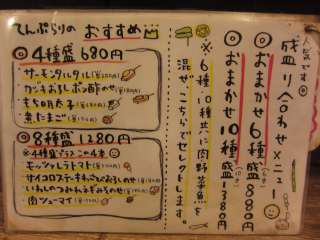 てんぷらりの おすすめ
◎4種盛 680円
・サーモンタルタル
・カキおろしポン酢のせ
・もち明太子
・煮たまご
◎8種盛 1280円
※4種盛プラスこの4本
・モッツァレラトマト
・サイコロステーキわさびおろしのせ
・いわしのつみれネギみそのせ
・肉シューマイ
人気です
盛り合わせメニュー
◎おまかせ6種盛 880円
◎おまかせ10種盛 1380円
※6種、10種共に肉・野菜・魚を
混ぜ、こちらでセレクトします。